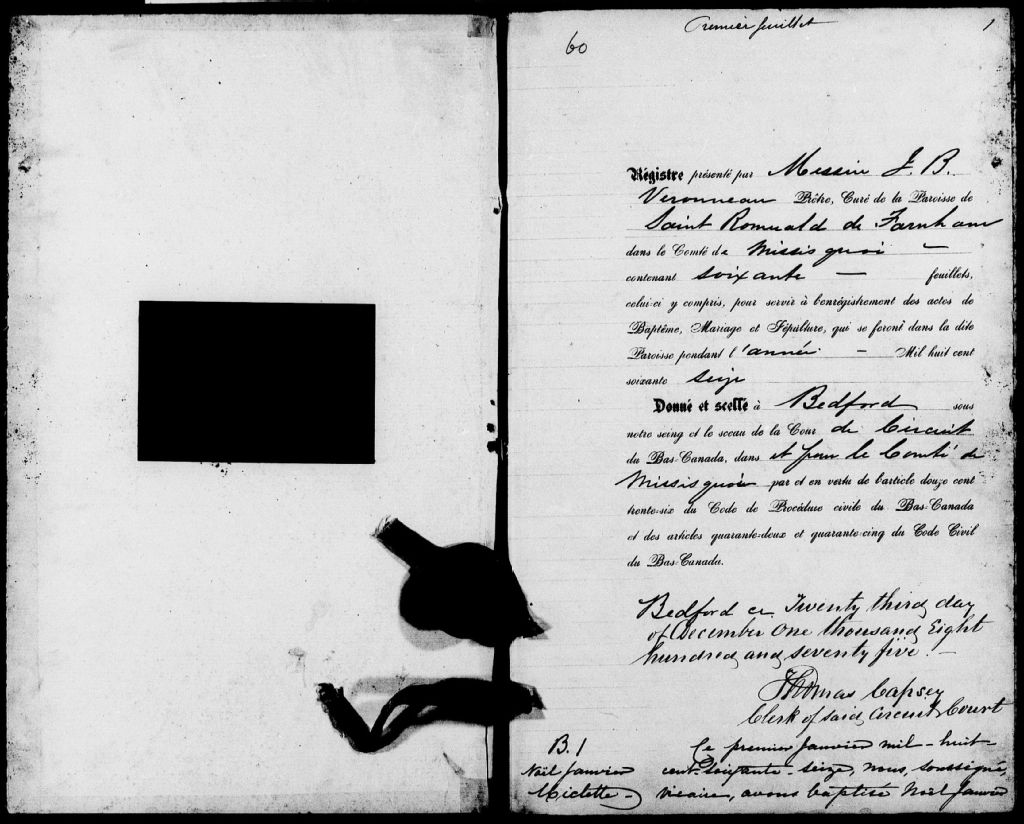 Premier feuillet
1
60
Régistre présenté par Messire J. B.
Veronneau Prêtre, Curé de la Paroisse de
Saint Romuald de Farnham
dans le Comté de Missisquoi —
contenant soixante — feuillets,
celui-ci y compris, pour servir à l'enrégistrement des actes de
Baptême, Mariage et Sépulture, qui se feront dans la dite
Paroisse pendant l'année — Mil huit cent
soixante seize
Donné et scellé à Bedford sous
notre seing et le sceau de la Cour de Circuit
du Bas-Canada, dans et pour le Comté de
Missisquoi par et en vertu de l'article douze cent
trente-six du Code de Procédure civile du Bas-Canada
et des articles quarante-deux et quarante-cinq du Code Civil
du Bas-Canada.
Bedford ce Twenty third day
of December One thousand Eight
hundred and seventy five. —
Thomas Capsey
Clerk of said Circuit Court
B. 1
Noël Janvier
Miclette
Ce premier Janvier mil-huit-
cent-soixante-seize, nous, soussigné,
vicaire, avons baptisé Noël Janvier